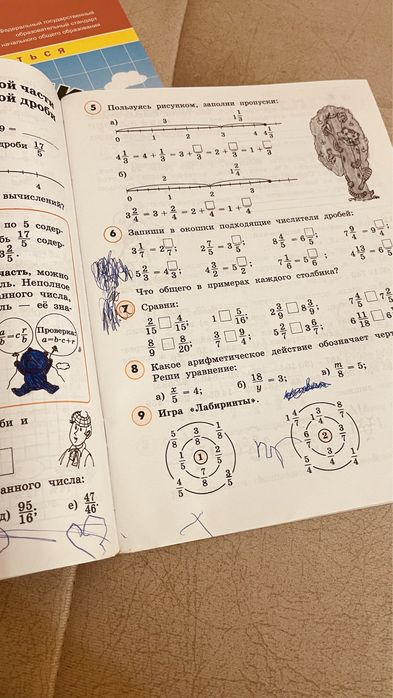 Федеральный государственный
образовательный стандарт
начального общего образования
ТЬСЯ
ой части
ой дроби
9 =
дроби 17/5
4
вычислений?
по 5 содер-
17/5 содер-
3 2/5.
часть, можно
ль. Неполное
анного числа,
ль — её зна-
a/b = c r/b
Проверка:
a=b·c+r
би и
анного числа:
д) 95/16; е) 47/46.
5 Пользуясь рисунком, заполни пропуски:
а) 3 1 1/3
0 1 2 3 4 4 1/3
4 1/3 = 4 + 1/3 = 3 + □/3 = 2 + □/3 = 1 + □/3
б) 2 1 2/4
0 1 2 3
3 2/4 = 3 + 2/4 = 2 + □/4 = 1 + □/4
6 Запиши в окошки подходящие числители дробей:
3 1/7 = 2 □/7; 2 2/5 = 3 □/5; 8 4/5 = 6 □/5; 7 9/4 = 9 □/4
5 2/3 = 4 □/3; 4 3/2 = 5 □/2; 7 1/6 = 5 □/6; 4 13/5 = 6 □/5
Что общего в примерах каждого столбика?
7 Сравни:
2/15 □ 4/15; 1 □ 5/16; 2 3/9 □ 8 3/9; 7 4/5 □ 7 2/5
8/9 □ 8/20; 3/7 □ 9/4; 5 2/7 □ 3 6/7; 6 11/18 □ 6
8 Какое арифметическое действие обозначает черт
Реши уравнение:
а) x/5 = 4; б) 18/y = 3; в) m/8 = 5;
9 Игра «Лабиринты».
5/8 3/8 1/8
1/5 1 2/5
4/5 7/8 3/5
1 4/7 1 3/4 8/7
6/7 2 3/7
5/4 3/4 1/4